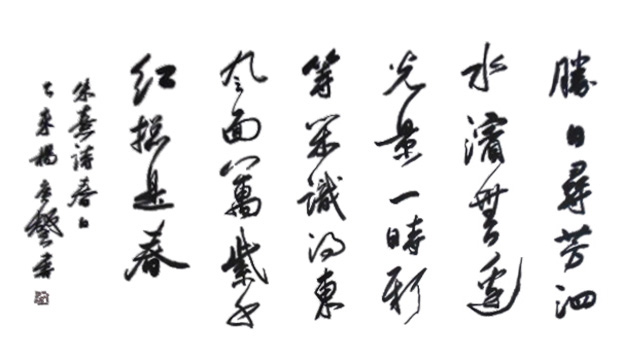 勝日尋芳泗
水濱無邊
光景一時新
等閒識得東
风面萬紫千
红總是春
朱熹詩春日
乙未楊書